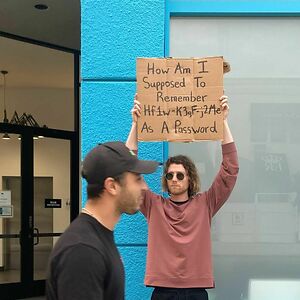 How Am I
Supposed To
Remember
Hf1w-K3gF-j2Me
As A Password